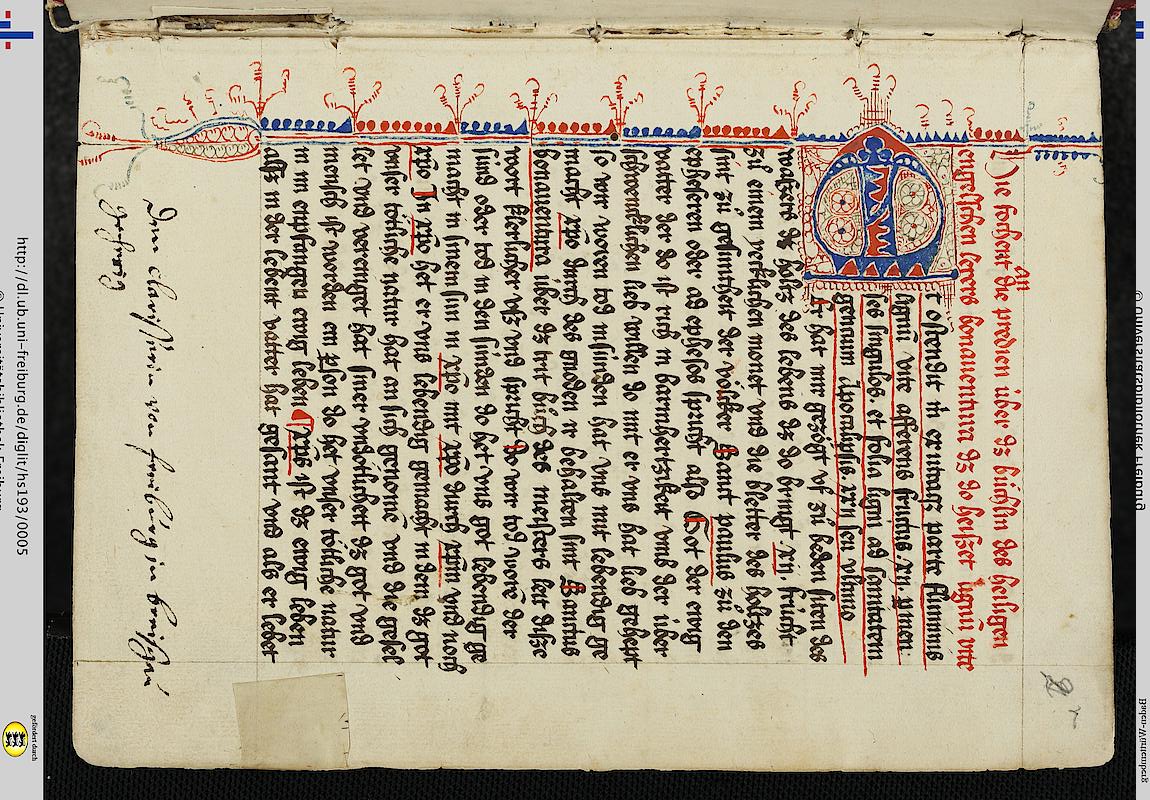 Die sechent die predien über dz büchlin des heiligen
engelschen lerers bonauentura dz do heisset lignū vite
Ostendit m̄ ex utraqꝫ parte fluminis
lignū vite afferens fructus .xij. p̱ men
ses singulos. et folia ligni ad sanitatem
gencium Apocalipsis xxij seu ultimo
Er hat mir gezögt vf zů beden siten des
wassers dz holtz des lebens dz do bringt .xij. frücht
zů einem yetlichen monet vnd die bletter des holtzes
sint zů gesuntheit der völker Sant paulus zů den
epheseren oder ad ephesios spricht also Got der ewig
vatter der do ist rich in barmhertzikeit vmb der über
schwencklichen lieb willen do mit er vns hat lieb gehept
so wir woren tod in sünden hat vns mit lebendig ge
macht xp̄o durch des gnaden ir behalten sint Sanctus
bonauentura über dz trit bůch des meisters leit disse
wort klerlicher vsz vnd spricht do wir tod wore der
sünd oder tod in den sünden do het vns got lebendig ge
macht in sinem sun in xp̄o mit xp̄o durch xp̄m vnd noch
xp̄o In xp̄o het er vns lebendig gemacht in dem dz got
vnser tötliche natur hat an sich genomē vnd die gesel
let vnd vereinget hat siner vntötlicheit dz got vnd
mensch ist worden ein p̱son do het vnser tötliche natur
in im enpfangen ewig leben xp̄us ist dz ewig leben
alsz in der lebent vatter hat gesant vnd als er lebet
Den clarissin von friburg in brissgu
http://dl.ub.uni-freiburg.de/diglit/hs193/0005
© Universitätsbibliothek Freiburg
gefördert durch
Baden-Württemberg